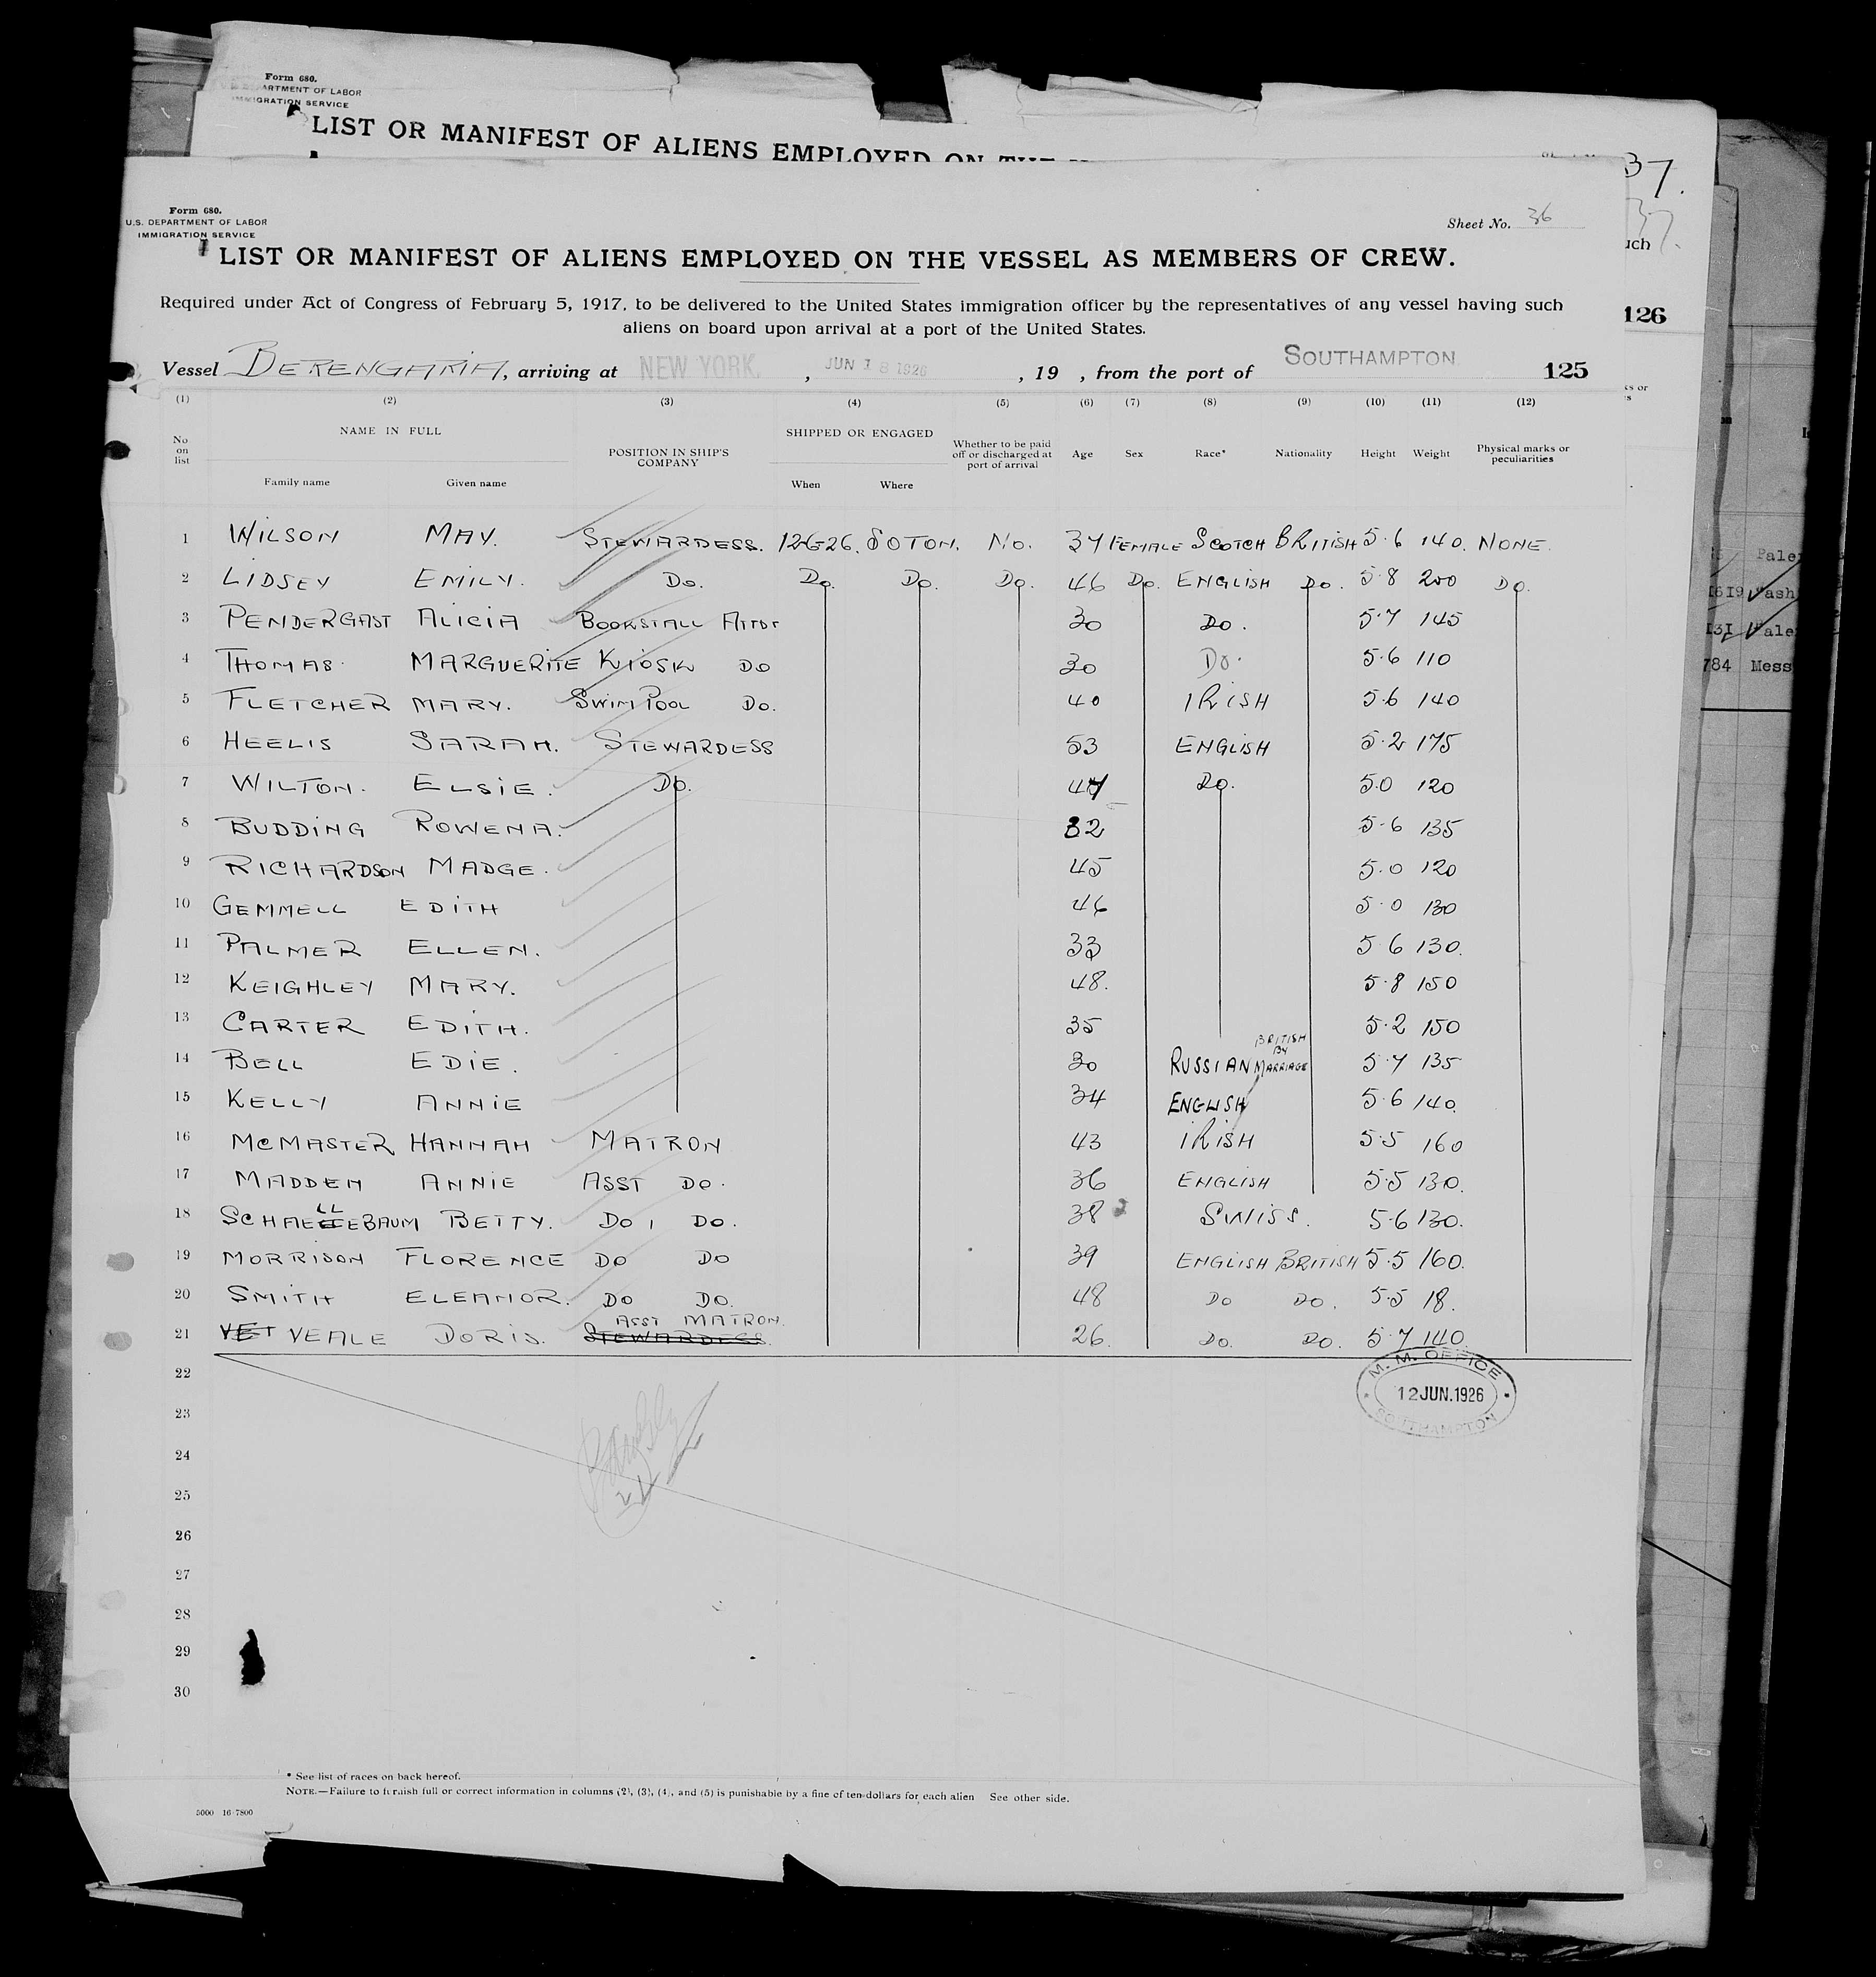 Form 680.
ARTMENT OF LABOR
IMMIGRATION SERVICE
LIST OR MANIFEST OF ALIENS EMPLOYED ON THE
37.
37.
uch
126
ks or
s
Form 680.
U.S. DEPARTMENT OF LABOR
IMMIGRATION SERVICE
Sheet No. 36
LIST OR MANIFEST OF ALIENS EMPLOYED ON THE VESSEL AS MEMBERS OF CREW.
Required under Act of Congress of February 5, 1917, to be delivered to the United States immigration officer by the representatives of any vessel having such
aliens on board upon arrival at a port of the United States.
Vessel BERENGARIA, arriving at NEW YORK, JUN 18 1926, 19 , from the port of SOUTHAMPTON 125
(1) (2) (3) (4) (5) (6) (7) (8) (9) (10) (11) (12)
No on list NAME IN FULL POSITION IN SHIP'S COMPANY SHIPPED OR ENGAGED Whether to be paid off or discharged at port of arrival Age Sex Race* Nationality Height Weight Physical marks or peculiarities
Family name Given name When Where
1 WILSON MAY. STEWARDESS. 12-6-26. SOTON. No. 37 FEMALE SCOTCH BRITISH 5.6 140. NONE.
2 LIDSEY EMILY. Do. Do. Do. Do. 46 Do. ENGLISH Do. 5.8 200 Do.
3 PENDERGAST ALICIA BOOKSTALL ATTDT 30 Do. 5.7 145
4 THOMAS. MARGUERITE KIOSK DO 30 Do. 5.6 110
5 FLETCHER MARY. SWIM POOL Do. 40 IRISH 5.6 140
6 HEELIS SARAH. STEWARDESS 53 ENGLISH 5.2 175
7 WILTON. ELSIE. Do. 47 Do. 5.0 120
8 BUDDING ROWENA. 32 5.6 135
9 RICHARDSON MADGE. 45 5.0 120
10 GEMMELL EDITH 46 5.0 130
11 PALMER ELLEN. 33 5.6 130.
12 KEIGHLEY MARY. 48. 5.8 150
13 CARTER EDITH. 35 5.2 150
14 BELL EDIE. 30 RUSSIAN BRITISH BY MARRIAGE 5.7 135
15 KELLY ANNIE 34 ENGLISH 5.6 140.
16 McMASTER HANNAH MATRON 43 IRISH 5.5 160
17 MADDEN ANNIE ASST DO. 36 ENGLISH 5.5 130.
18 SCHAELLEBAUM BETTY. DO, DO. 38 SWISS. 5.6 130.
19 MORRISON FLORENCE DO DO 39 ENGLISH BRITISH 5.5 160.
20 SMITH ELEANOR. DO DO. 48 DO DO. 5.5 18.
ASST MATRON.
21 VET VEALE DORIS. STEWARDESS. 26. DO. DO. 5.7 140.
22
23
24
25
26
27
28
29
30
M. M. OFFICE
12 JUN. 1926
SOUTHAMPTON
21
* See list of races on back hereof.
NOTE.—Failure to furnish full or correct information in columns (2), (3), (4), and (5) is punishable by a fine of ten dollars for each alien See other side.
5000 16-7800
Pale
1619 Wash
131 Pale
784 Mess